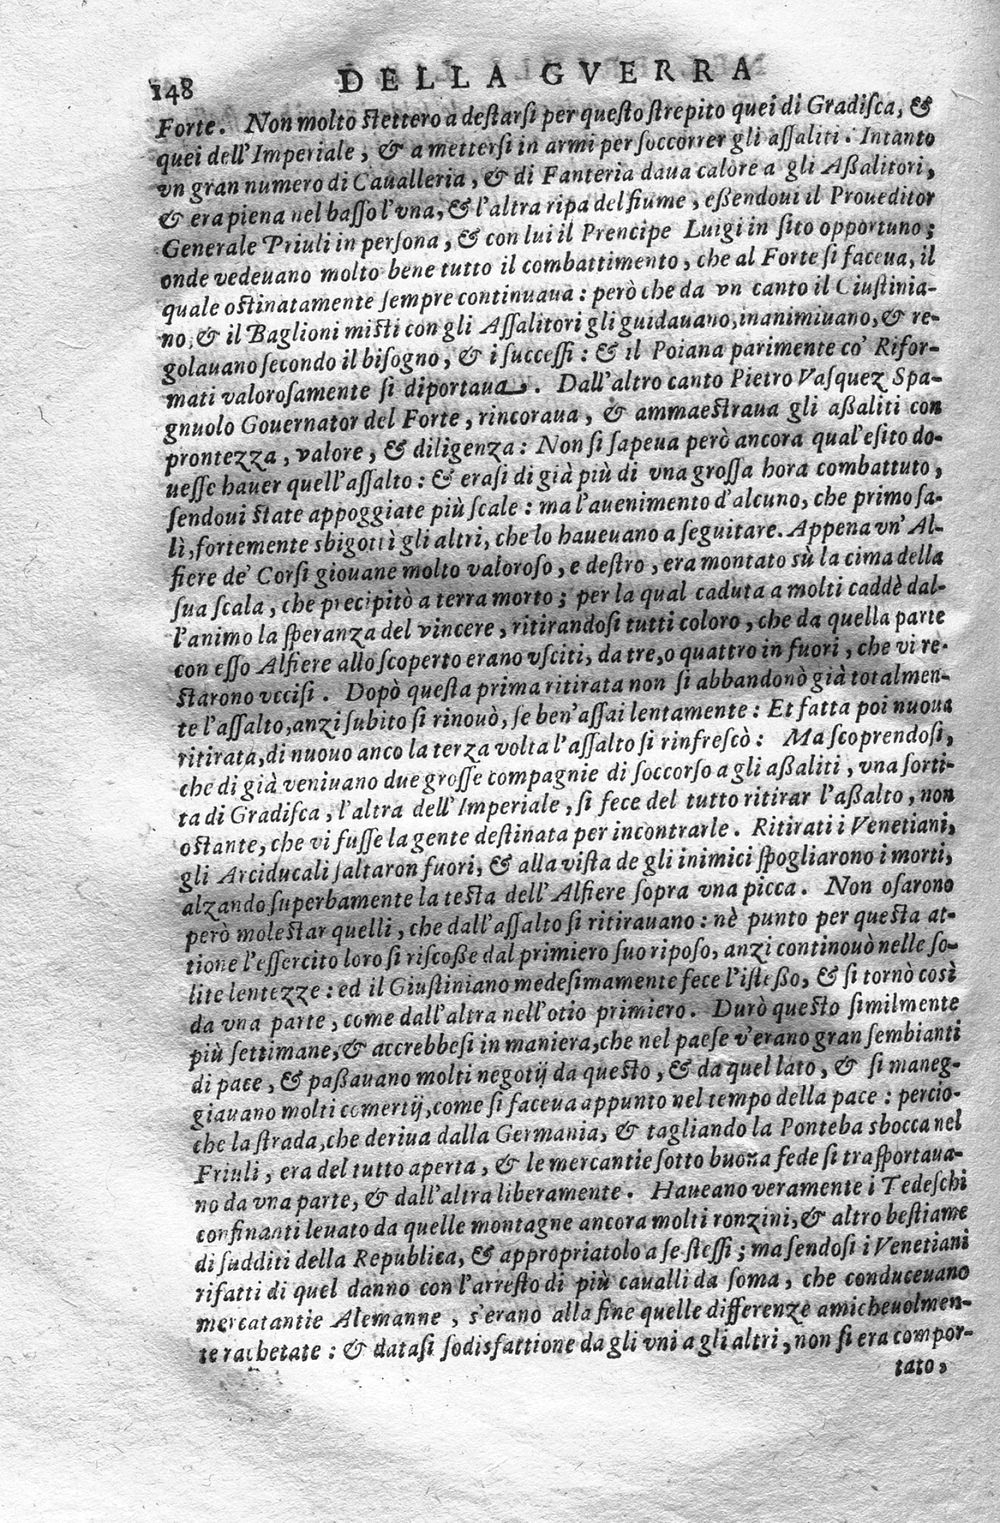 148 DELLA GVERRA
Forte. Non molto stettero a destarsi per questo strepito quei di Gradiſca, &
quei dell'Imperiale, & a mettersi in armi per ſoccorrer gli aſſaliti. Intanto
vn gran numero di Caualleria, & di Fanteria daua calore a gli Aßalitori,
& era piena nel baſſo l'vna, & l'altra ripa del fiume, eßendoui il Proueditor
Generale Priuli in perſona, & con lui il Prencipe Luigi in ſito opportuno;
onde vedeuano molto bene tutto il combattimento, che al Forte ſi faceua, il
quale ostinatamente ſempre continuaua: però che da vn canto il Giuſtinia-
no, & il Baglioni misti con gli Aſſalitori gli guidauano, inanimiuano, & re-
golauano ſecondo il biſogno, & i ſucceſſi: & il Poiana parimente co' Rifor-
mati valoroſamente ſi diportaua. Dall'altro canto Pietro Vaſquez Spa-
gnuolo Gouernator del Forte, rincoraua, & ammaestraua gli aßaliti con
prontezza, valore, & diligenza: Non ſi ſapeua però ancora qual'eſito do-
ueſſe hauer quell'aſſalto: & eraſi di già più di vna groſſa hora combattuto,
ſendoui state appoggiate più ſcale: ma l'auenimento d'alcuno, che primo ſa-
lì, fortemente sbigottì gli altri, che lo haueuano a ſeguitare. Appena vn' Al-
fiere de' Corſi giouane molto valoroſo, e destro, era montato sù la cima della
ſua ſcala, che precipitò a terra morto; per la qual caduta a molti caddè dal-
l'animo la ſperanza del vincere, ritirandoſi tutti coloro, che da quella parte
con eſſo Alfiere allo ſcoperto erano vſciti, da tre, o quattro in fuori, che vi re-
starono vcciſi. Dopò queſta prima ritirata non ſi abbandonò già totalmen-
te l'aſſalto, anzi ſubito ſi rinouò, ſe ben'aſſai lentamente: Et fatta poi nuoua
ritirata, di nuouo anco la terza volta l'aſſalto ſi rinfreſcò: Ma ſcoprendoſi,
che di già veniuano due groſſe compagnie di ſoccorſo a gli aßaliti, vna ſorti-
ta di Gradiſca, l'altra dell'Imperiale, ſi fece del tutto ritirar l'aßalto, non
ostante, che vi fuſſe la gente deſtinata per incontrarle. Ritirati i Venetiani,
gli Arciducali ſaltaron fuori, & alla viſta de gli inimici ſpogliarono i morti,
alzando ſuperbamente la testa dell'Alfiere ſopra vna picca. Non oſarono
però molestar quelli, che dall'aſſalto ſi ritirauano: nè punto per questa at-
tione l'eſſercito loro ſi riſcoße dal primiero ſuo ripoſo, anzi continouò nelle ſo-
lite lentezze: ed il Giuſtiniano medeſimamente fece l'iſteßo, & ſi tornò così
da vna parte, come dall'altra nell'otio primiero. Durò questo ſimilmente
più ſettimane, & accrebbeſi in maniera, che nel paeſe v'erano gran ſembianti
di pace, & paßauano molti negotij da questo, & da quel lato, & ſi maneg-
giauano molti comertij, come ſi faceua appunto nel tempo della pace: percio-
che la ſtrada, che deriua dalla Germania, & tagliando la Ponteba sbocca nel
Friuli, era del tutto aperta, & le mercantie ſotto buona fede ſi traſportaua-
no da vna parte, & dall'altra liberamente. Haueano veramente i Tedeſchi
confinanti leuato da quelle montagne ancora molti ronzini, & altro beſtiame
di ſudditi della Republica, & appropriatolo a ſe ſteſſi; ma ſendoſi i Venetiani
rifatti di quel danno con l'arreſto di più caualli da ſoma, che conduceuano
mercatantie Alemanne, s'erano alla fine quelle differenze amicheuolmen-
te rachetate: & dataſi ſodisfattione da gli vni a gli altri, non ſi era compor-
tato,